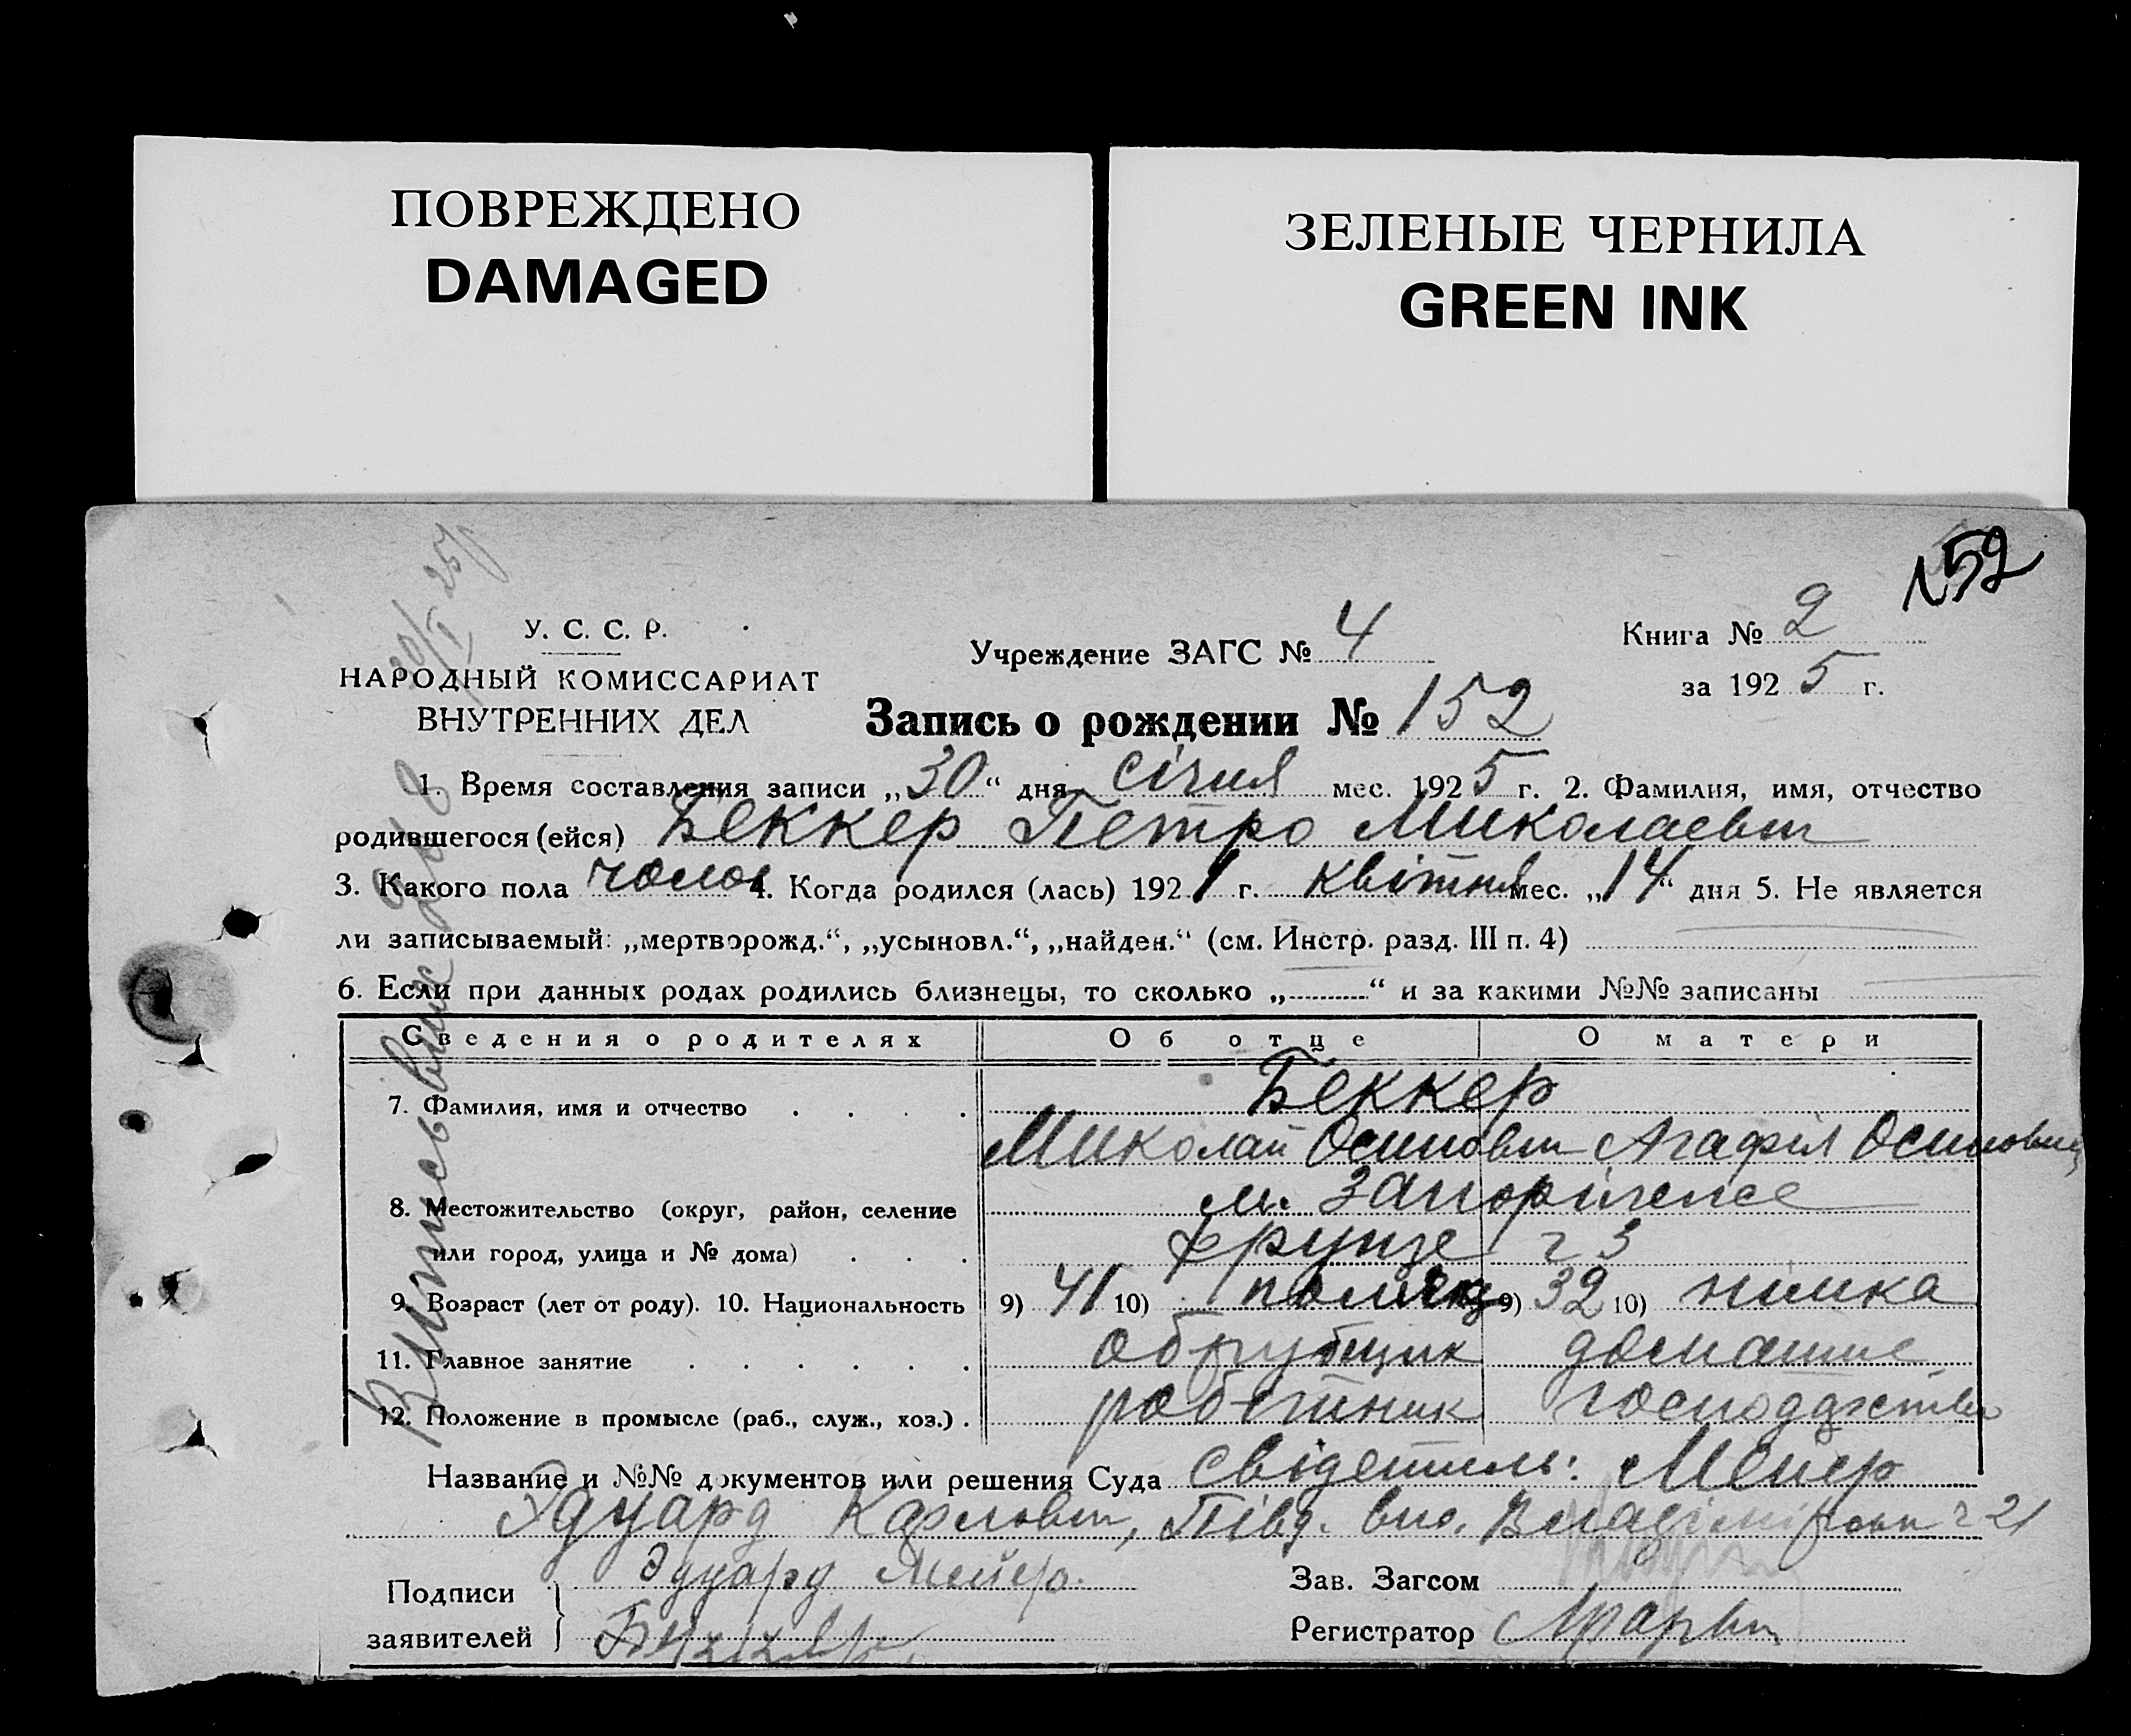 ПОВРЕЖДЕНО
DAMAGED
ЗЕЛЕНЫЕ ЧЕРНИЛА
GREEN INK
№52
У. С. С. Р.
НАРОДНЫЙ КОМИССАРИАТ
ВНУТРЕННИХ ДЕЛ
Учреждение ЗАГС № 4
Книга № 2
за 1925 г.
Запись о рождении № 152
1. Время составления записи „30“ дня січня мес. 1925 г. 2. Фамилия, имя, отчество
родившегося (ейся) Беккер Петро Миколаевич
3. Какого пола чолов 4. Когда родился (лась) 1921 г. квітня мес. „14“ дня 5. Не является
ли записываемый: „мертворожд.“, „усыновл.“, „найден.“ (см. Инстр. разд. III п. 4)
6. Если при данных родах родились близнецы, то сколько „ “ и за какими №№ записаны
Сведения о родителях Об отце О матери
7. Фамилия, имя и отчество Беккер
Миколай Осипович Агафія Осиповна
8. Местожительство (округ, район, селение м. Запоріжже
или город, улица и № дома) Фрунзе ч 3
9. Возраст (лет от роду). 10. Национальность 9) 41 10) поляк 9) 32 10) німка
11. Главное занятие обрубщик домашнє
12. Положение в промысле (раб., служ., хоз.) робітник господарство
Название и №№ документов или решения Суда свідетель: Мейер
Эдуард Карлович, Півд. вис. ч 21
Подписи заявителей Эдуард Мейер.
Зав. Загсом
Регистратор